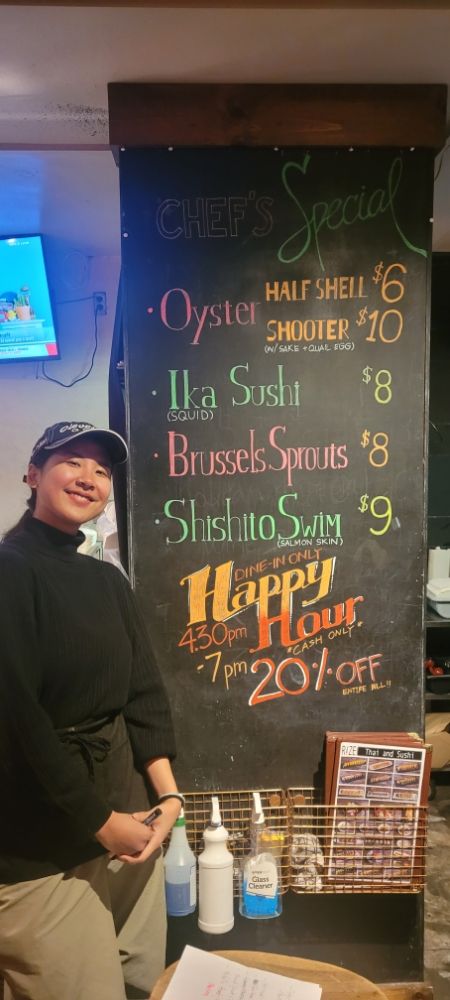 CHEF'S Special
• Oyster HALF SHELL $6
SHOOTER $10
(W/ SAKE + QUAIL EGG)
• Ika Sushi $8
(SQUID)
• Brussels Sprouts $8
• Shishito Swim $9
(SALMON SKIN)
DINE-IN ONLY
Happy
Hour
4:30pm
-7pm
*CASH ONLY*
20% OFF
ENTIRE BILL!!
RIZE Thai and Sushi
Glass
Cleaner